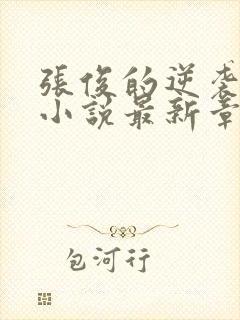 張俊的逆袭
小說最新章
包河行